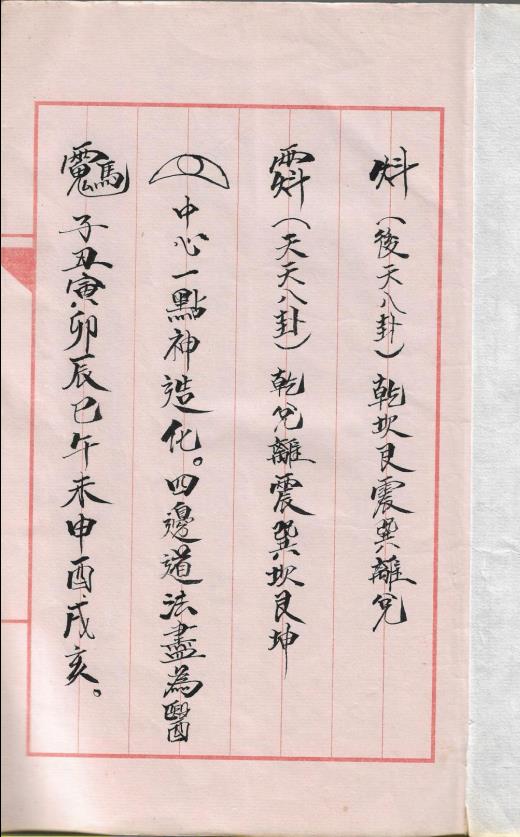 炓（後天八卦）乾坎艮震巽離兌
（天天八卦）乾兌離震巽坎艮坤
中心一點神造化。四邊道法盡為醫
子丑寅卯辰巳午未申酉戌亥。